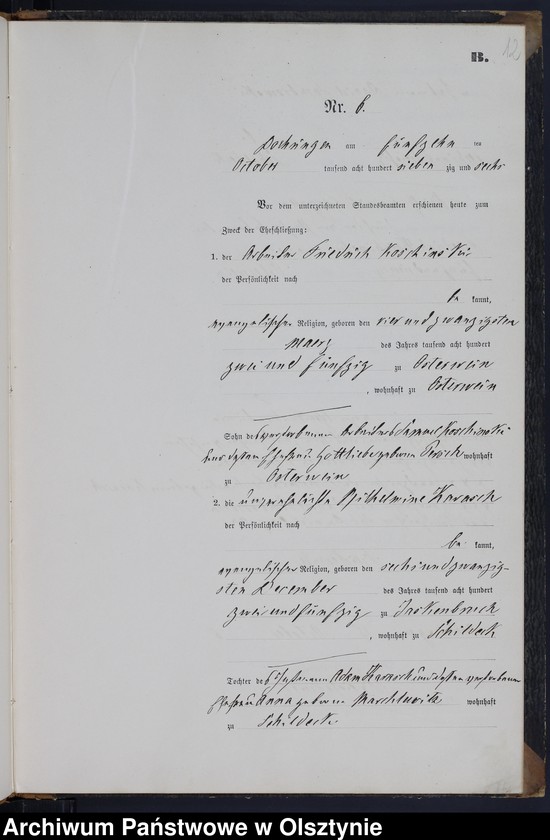 B.
12
Nr. 6.
am fünfzehn ten
October tausend acht hundert sieben zig und sechs
Vor dem unterzeichneten Standesbeamten erschienen heute zum
Zweck der Eheschließung:
1. der Arbeiter Friedrich Koschinski
der Persönlichkeit nach
be kannt,
evangelischer Religion, geboren den vier und zwanzigsten
Maerz des Jahres tausend acht hundert
zwei und fünfzig zu Osterwein
, wohnhaft zu Osterwein
Sohn des verstorbenen Arbeiters Samuel Koschinski
und dessen Ehefrau Gottliebe geborne wohnhaft
zu Osterwein
2. die unverehelichte Wilhelmine Karasch
der Persönlichkeit nach
be kannt,
evangelischer Religion, geboren den sechsundzwanzig-
sten December des Jahres tausend acht hundert
zweiundfünfzig zu
, wohnhaft zu Schildeck
Tochter des Adam Karasch und dessen verstorbenen
Ehefrau Anna geborne wohnhaft
zu Schildeck
Archiwum Państwowe w Olsztynie